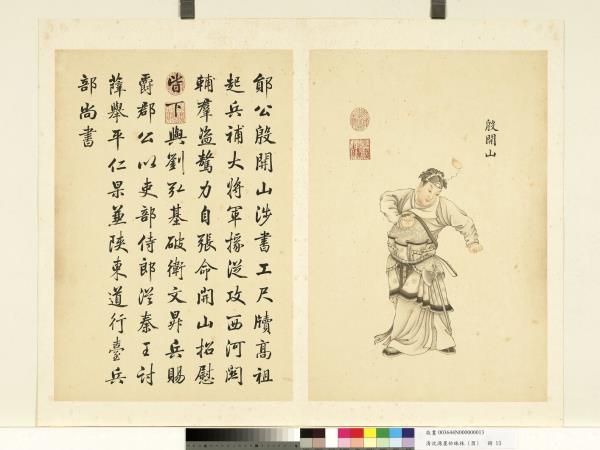 殷開山
鄖公殷開山涉書工尺牘高祖
起兵補大將軍掾從攻西河關
輔羣盜鷙力自張命開山招慰
皆下與劉弘基破衛文昇兵賜
爵郡公以吏部侍郎從秦王討
薛舉平仁果兼陝東道行臺兵
部尚書
故畫 003644N000000013
清沈源墨妙珠林（酉） 冊 13